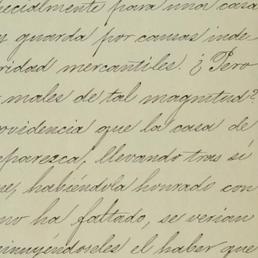 ecialmente para una casa
guarda por causas inde
ridad mercantiles ¿ Pero
males de tal magnitud?
ovidencia que la casa de
eparezca, llevando tras sí
ue, habiéndola honrado con
no ha faltado, se verían
inuyéndoseles el haber que